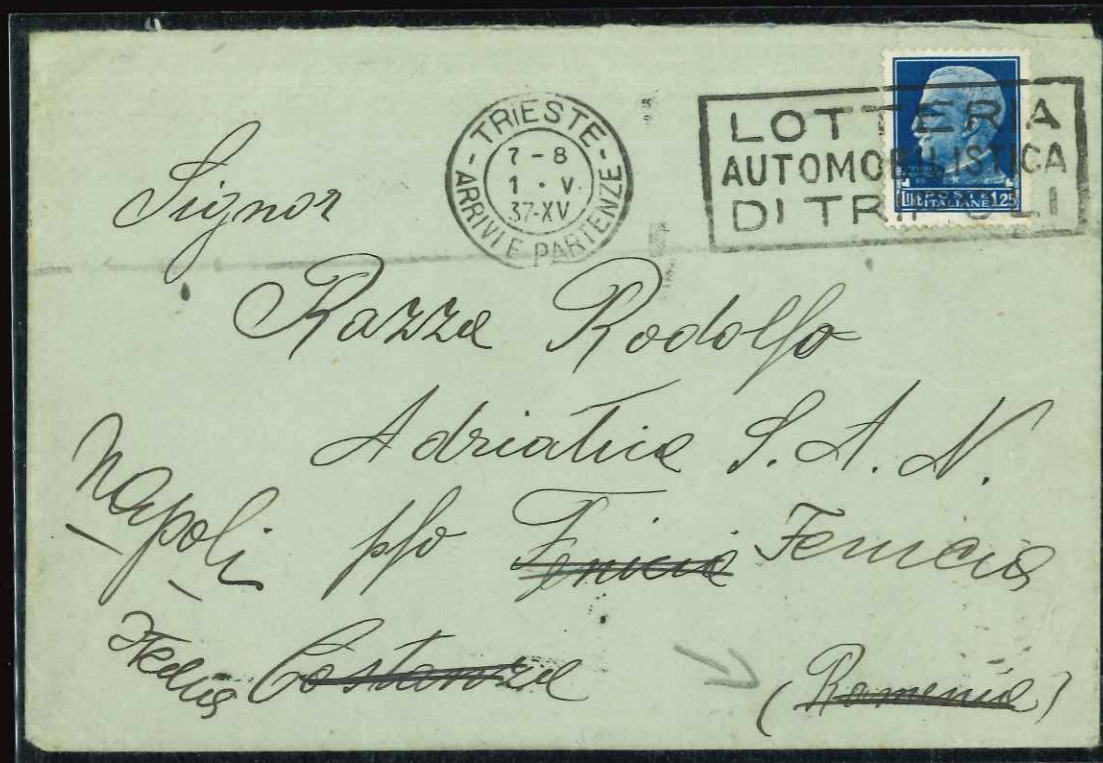 TRIESTE
7-8
1·V.
37-XV
ARRIVI E PARTENZE
LOTTERIA
AUTOMOBILISTICA
DI TRIPOLI
POSTE
ITALIANE 1.25
Signor
Razza Rodolfo
Adriatica S. A. N.
Napoli
pfo Fenicia Fenicia
Italia Costanza (Romenia)